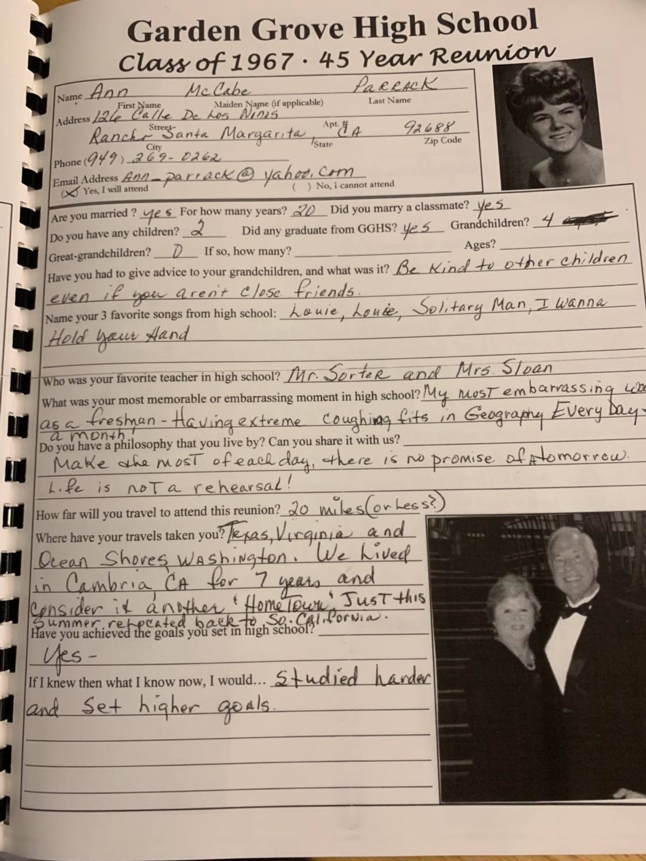 Garden Grove High School
Class of 1967 · 45 Year Reunion
Name Ann McCabe PARRACK
First Name Maiden Name (if applicable) Last Name
Address 126 Calle De Los Ninis
Street Apt. #
Rancho Santa Margarita, CA 92688
City State Zip Code
Phone (949) 269-0262
Email Address Ann_parrack@yahoo.com
(X) Yes, I will attend ( ) No, i cannot attend
Are you married? yes For how many years? 20 Did you marry a classmate? yes
Do you have any children? 2 Did any graduate from GGHS? yes Grandchildren? 4
Great-grandchildren? 0 If so, how many? Ages?
Have you had to give advice to your grandchildren, and what was it? Be Kind to other children
even if you aren't close friends.
Name your 3 favorite songs from high school: Louie, Louie, Solitary Man, I Wanna
Hold Your Hand
Who was your favorite teacher in high school? Mr. Sorter and Mrs. Sloan
What was your most memorable or embarrassing moment in high school? My most embarrassing was
as a freshman - Having extreme coughing fits in Geography Every Day -
a month
Do you have a philosophy that you live by? Can you share it with us?
Make the most of each day, there is no promise of tomorrow.
Life is not a rehearsal!
How far will you travel to attend this reunion? 20 miles (or Less?)
Where have your travels taken you? Texas, Virginia and
Ocean Shores, Washington. We Lived
in Cambria, CA for 7 years and
consider it another 'HomeTown'. Just this
Summer relocated back to So. California.
Have you achieved the goals you set in high school?
Yes -
If I knew then what I know now, I would... Studied harder
and set higher goals.